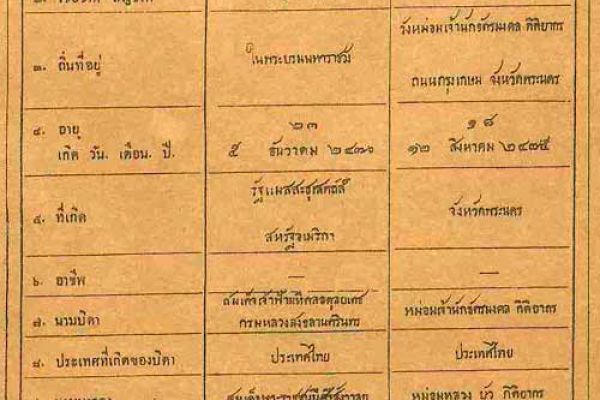 วังหม่อมเจ้านักขัตรมงคล กิติยากร
๓. ถิ่นที่อยู่
ในพระบรมมหาราชวัง
ถนนกรุงเกษม จังหวัดพระนคร
๔. อายุ
๒๓
๑๘
เกิด วัน. เดือน. ปี.
๕ ธันวาคม ๒๔๗๐
๑๒ สิงหาคม ๒๔๗๕
๕. ที่เกิด
รัฐแมสสะชูเสตส์
สหรัฐอเมริกา
จังหวัดพระนคร
๖. อาชีพ
—
—
๗. นามบิดา
สมเด็จเจ้าฟ้ามหิดลอดุลยเดช
กรมหลวงสงขลานครินทร
หม่อมเจ้านักขัตรมงคล กิติยากร
๘. ประเทศที่เกิดของบิดา
ประเทศไทย
ประเทศไทย
หม่อมหลวง บัว กิติยากร